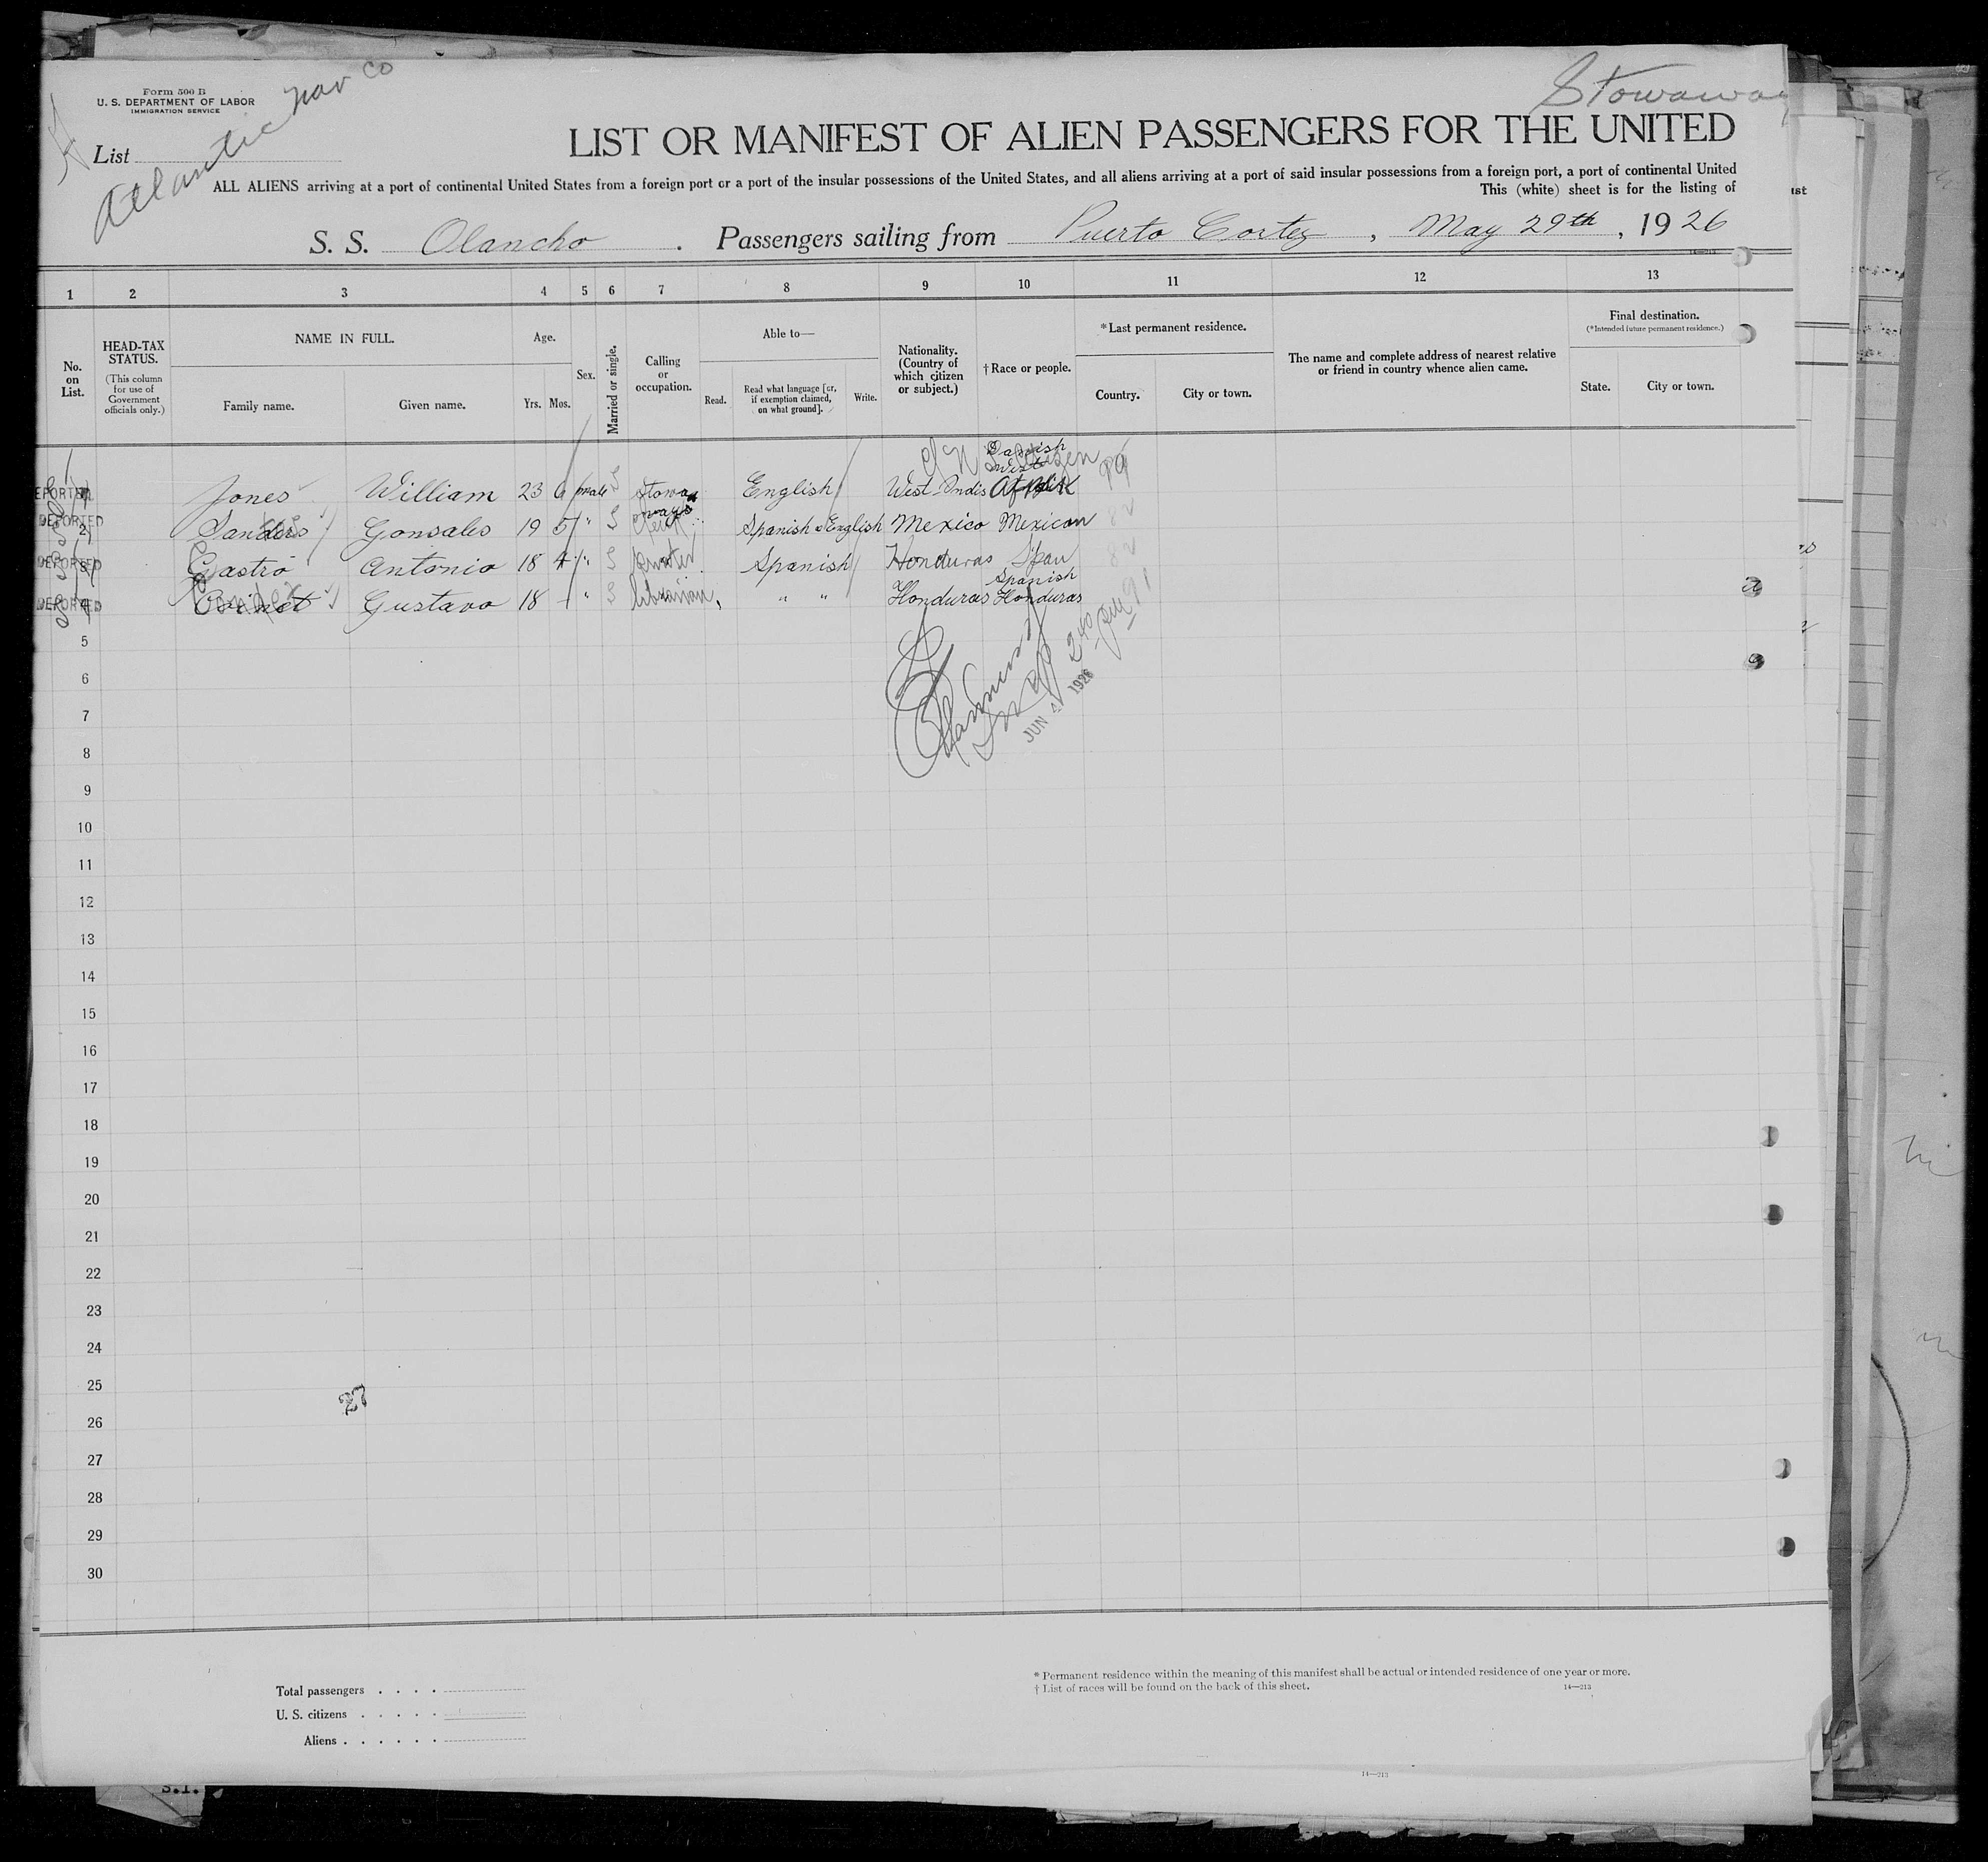 Form 500 B
U. S. DEPARTMENT OF LABOR
IMMIGRATION SERVICE
Atlantic Nav Co
Stowaway
List
LIST OR MANIFEST OF ALIEN PASSENGERS FOR THE UNITED
ALL ALIENS arriving at a port of continental United States from a foreign port or a port of the insular possessions of the United States, and all aliens arriving at a port of said insular possessions from a foreign port, a port of continental United
This (white) sheet is for the listing of
S. S. Olancho. Passengers sailing from Puerto Cortez, May 29th, 1926
14—213
1 2 3 4 5 6 7 8 9 10 11 12 13
No. on List.
HEAD-TAX STATUS.
(This column for use of Government officials only.)
NAME IN FULL.
Family name.
Given name.
Age.
Yrs. Mos.
Sex.
Married or single.
Calling or occupation.
Able to—
Read.
Read what language [or, if exemption claimed, on what ground].
Write.
Nationality. (Country of which citizen or subject.)
†Race or people.
*Last permanent residence.
Country.
City or town.
The name and complete address of nearest relative or friend in country whence alien came.
Final destination.
(*Intended future permanent residence.)
State.
City or town.
DEPORTED Jones William 23 6 male S Stowaways English West Indis
DEPORTED 2 Gonsales 19 5 " S Spanish & English Mexico Mexican
DEPORTED 3 Castro Antonio 18 4 " S Spanish Honduras Span
DEPORTED 4 Gustavo 18 " S " " Honduras Spanish Honduras
JUN 4 1926
5
6
7
8
9
10
11
12
13
14
15
16
17
18
19
20
21
22
23
24
25
27
26
27
28
29
30
Total passengers . . . .
U. S. citizens . . . . .
Aliens . . . . . .
* Permanent residence within the meaning of this manifest shall be actual or intended residence of one year or more.
† List of races will be found on the back of this sheet.
14—213
14—213
S.I.